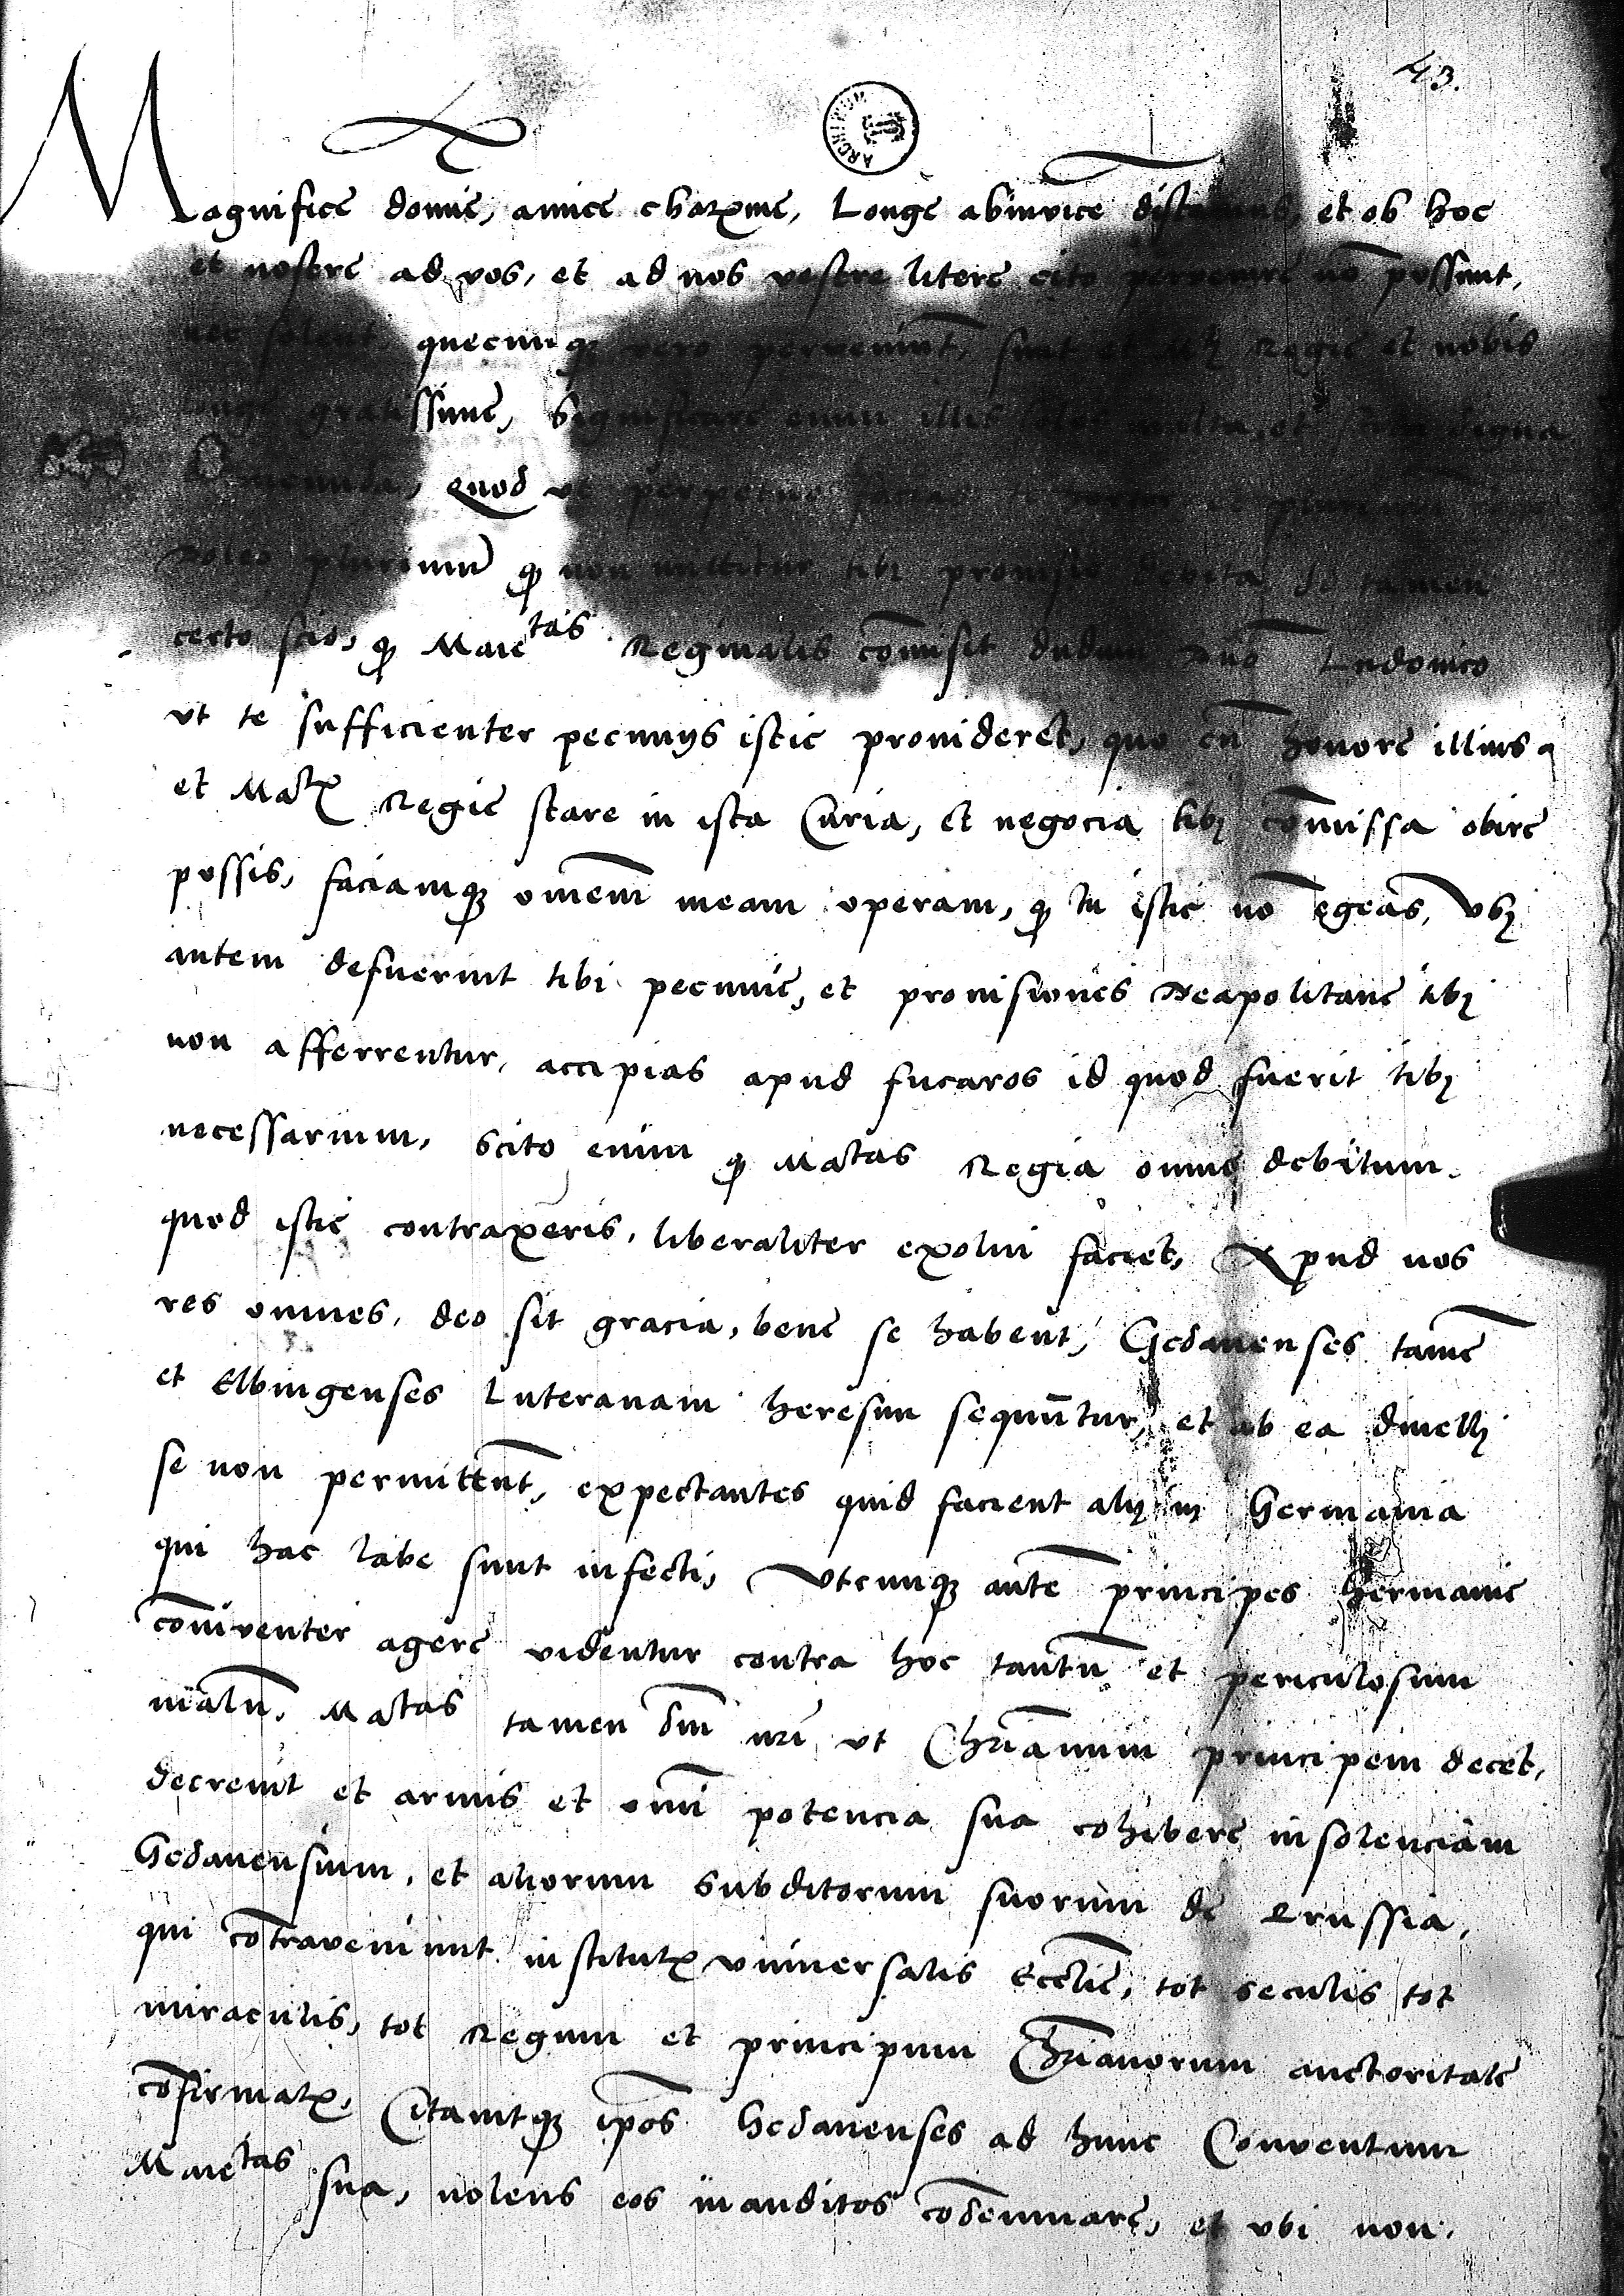 43.
ARCHIWUM
Magnifice domine, amice charxme, Longe abinvice distamus, et ob hoc
et nostre ad vos, et ad nos vestre litere cito pervenire nō possunt,
nec solent, quecunqȝ vero perveniūt, sunt Regie et nobis
longe gratissime, Significare enim illis et digna
Quod ut perpetuo
Doleo plurimū qȝ non mittitur tibi promissio tamen
certo scio, qȝ Maietas Reginalis cōmisit dudum dno Ludovico
ut te sufficienter pecunijs istic provideret, quo cū honore illius
et Matx Regie stare in ista Curia, et negocia tibj cōmissa obire
possis, faciamqȝ omēm meam operam, qȝ tu istic nō egeas, Vbj
autem defuerint tibi pecunie, et provisiones Neapolitane tibj
non afferrentur, accipias apud fucaros id quod fuerit tibj
necessarium, Scito enim qȝ Matas Regia omne debitum
quod istic contraxeris, liberaliter exolui faciet, Apud nos
res omnes, deo sit gracia, bene se habent, Gedanenses tamē
et Elbingenses Luteranam heresim sequūtur, et ab ea diuellj
se non permittēt, expectantes quid facient alij in Germania
qui hac labe sunt infecti, Vtcunqȝ autē principes Germanie
cōniventer agere videntur contra hoc tantū et periculosum
malū, Matas tamen dm nri ut Chrianum principem decet,
decrevit et armis et omi potencia sua cohibere insolenciam
Gedanensium, et aliorum subditorum suorum de Prussia,
qui cōtraveniunt institutx vniuersalis Ecclie, tot seculis tot
miraculis, tot Regum et principum Chrianorum auctoritate
cōfirmatx, Citavitqȝ ipos Gedanenses ad hunc Conventum
Maietas sua, nolens eos inauditos cōdemnare, et vbi non